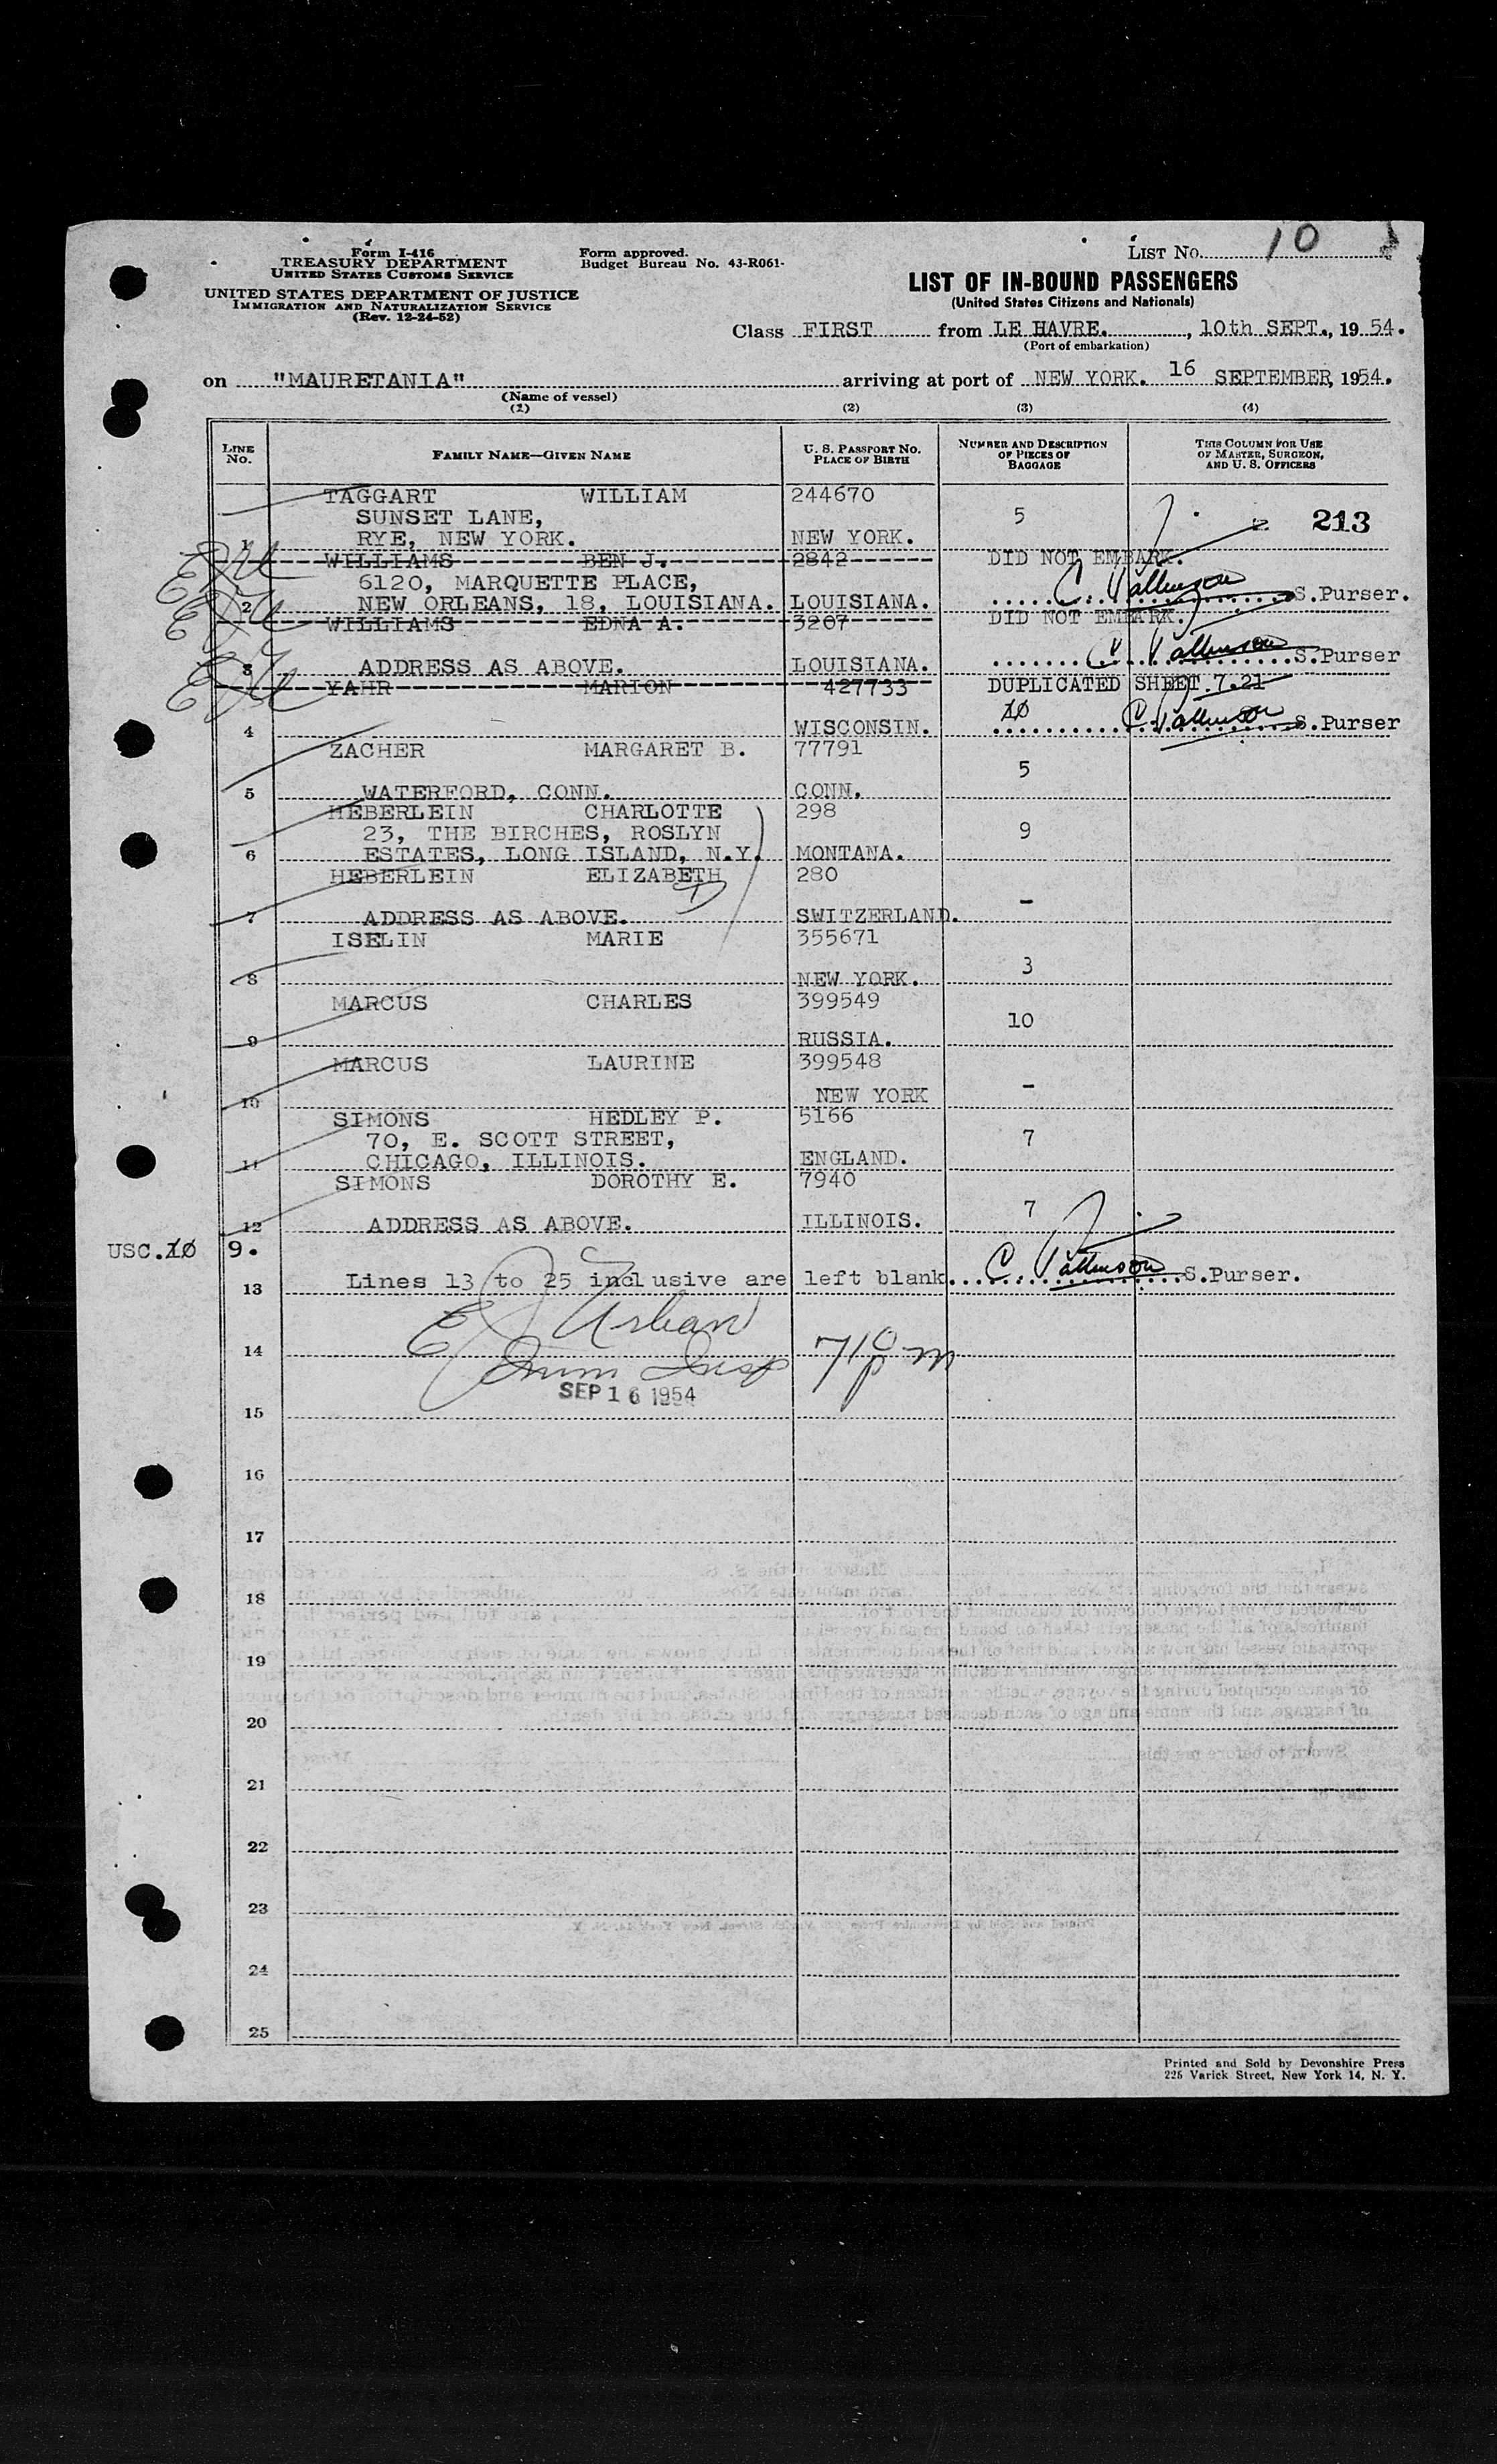 Form I-416
TREASURY DEPARTMENT
UNITED STATES CUSTOMS SERVICE
UNITED STATES DEPARTMENT OF JUSTICE
IMMIGRATION AND NATURALIZATION SERVICE
(Rev. 12-24-52)
Form approved.
Budget Bureau No. 43-R061-
LIST No. 10
LIST OF IN-BOUND PASSENGERS
(United States Citizens and Nationals)
Class FIRST from LE HAVRE., 10th SEPT., 1954.
(Port of embarkation)
on "MAURETANIA" arriving at port of NEW YORK. 16 SEPTEMBER, 1954.
(Name of vessel)
(1) (2) (3) (4)
LINE No. FAMILY NAME—GIVEN NAME U. S. PASSPORT NO. PLACE OF BIRTH NUMBER AND DESCRIPTION OF PIECES OF BAGGAGE THIS COLUMN FOR USE OF MASTER, SURGEON, AND U. S. OFFICERS
TAGGART WILLIAM 244670
SUNSET LANE, 5 213
1 RYE, NEW YORK. NEW YORK.
WILLIAMS BEN J. 2842 DID NOT EMBARK.
6120, MARQUETTE PLACE,
2 NEW ORLEANS, 18, LOUISIANA. LOUISIANA. S.Purser.
WILLIAMS EDNA A. 3207 DID NOT EMBARK.
3 ADDRESS AS ABOVE. LOUISIANA. S.Purser
YAHR MARION 427733 DUPLICATED SHEET.7.21
10
4 WISCONSIN. S.Purser
ZACHER MARGARET B. 77791
5
5 WATERFORD, CONN. CONN.
HEBERLEIN CHARLOTTE 298
23, THE BIRCHES, ROSLYN 9
6 ESTATES, LONG ISLAND, N.Y. MONTANA.
HEBERLEIN ELIZABETH 280
D -
7 ADDRESS AS ABOVE. SWITZERLAND.
ISELIN MARIE 355671
3
8 NEW YORK.
MARCUS CHARLES 399549
10
9 RUSSIA.
MARCUS LAURINE 399548
-
10 NEW YORK
SIMONS HEDLEY P. 5166
70, E. SCOTT STREET, 7
11 CHICAGO, ILLINOIS. ENGLAND.
SIMONS DOROTHY E. 7940
7
12 ADDRESS AS ABOVE. ILLINOIS.
USC.10 9.
13 Lines 13 to 25 inclusive are left blank. S.Purser.
E J Urban
14 Imm Insp 710 pm
SEP 16 1954
15
16
17
18
19
20
21
22
23
24
25
Printed and Sold by Devonshire Press
225 Varick Street, New York 14, N. Y.